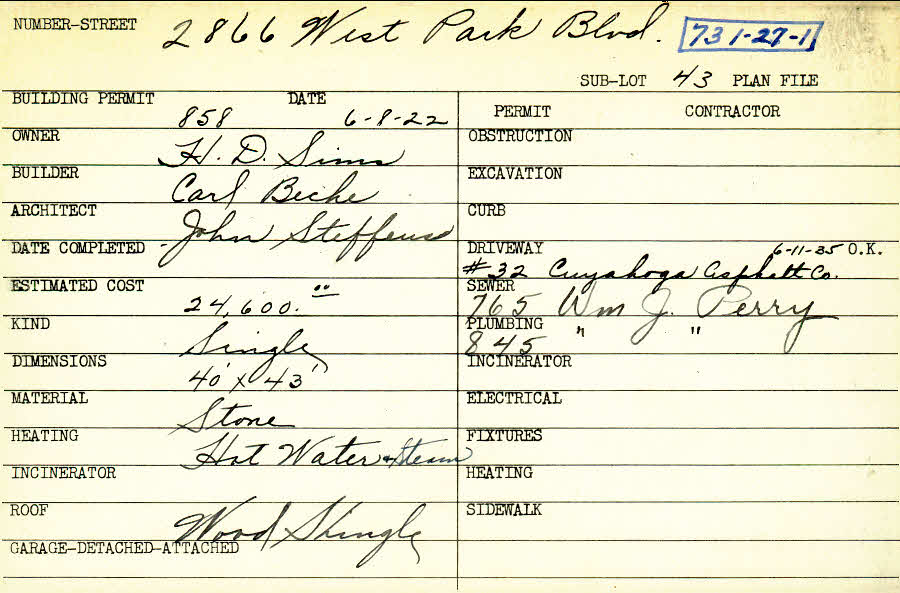 NUMBER-STREET 2866 West Park Blvd. 731-27-1
SUB-LOT 43 PLAN FILE
BUILDING PERMIT 858 DATE 6-8-22
OWNER H. D. Sims
BUILDER Carl Beche
ARCHITECT John Steffens
DATE COMPLETED -
ESTIMATED COST 24,600.00
KIND Single
DIMENSIONS 40' x 43'
MATERIAL Stone
HEATING Hot Water & Steam
INCINERATOR
ROOF Wood Shingle
GARAGE-DETACHED-ATTACHED
PERMIT CONTRACTOR
OBSTRUCTION
EXCAVATION
CURB
DRIVEWAY 6-11-35 O.K.
#32 Cuyahoga Asphalt Co.
SEWER 765 Wm J. Perry
PLUMBING 845 " "
INCINERATOR
ELECTRICAL
FIXTURES
HEATING
SIDEWALK